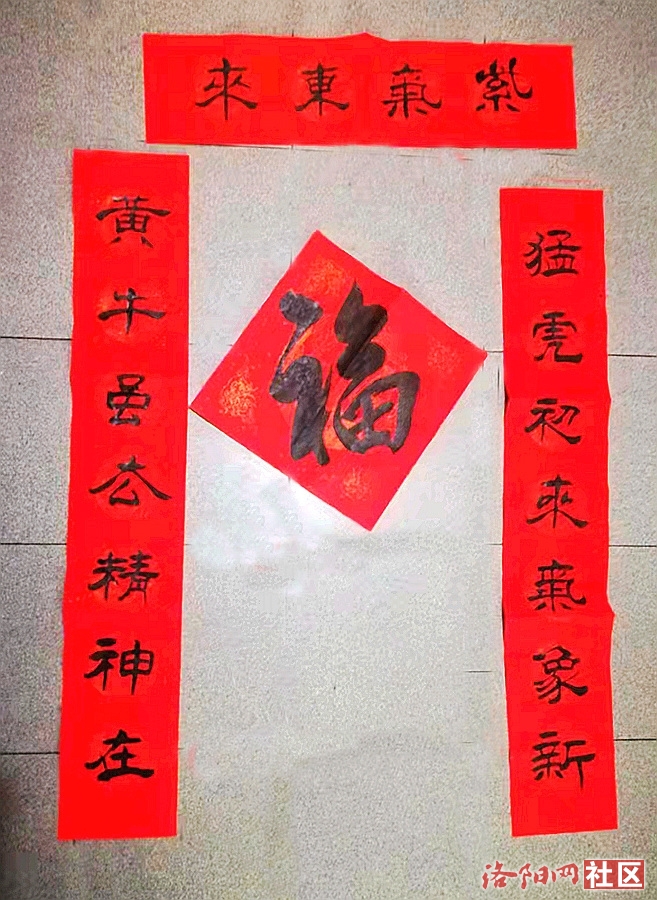 紫氣東來
猛虎初來氣象新
黄牛虽去精神在
福
洛阳网社区